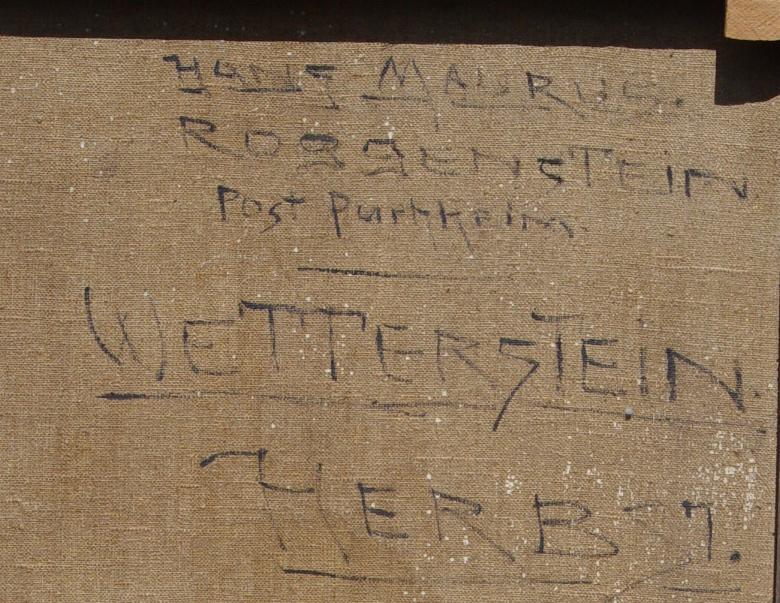 HANS MAURUS.
ROGGENSTEIN
Post Purkheim
WETTERSTEIN.
HERBST.